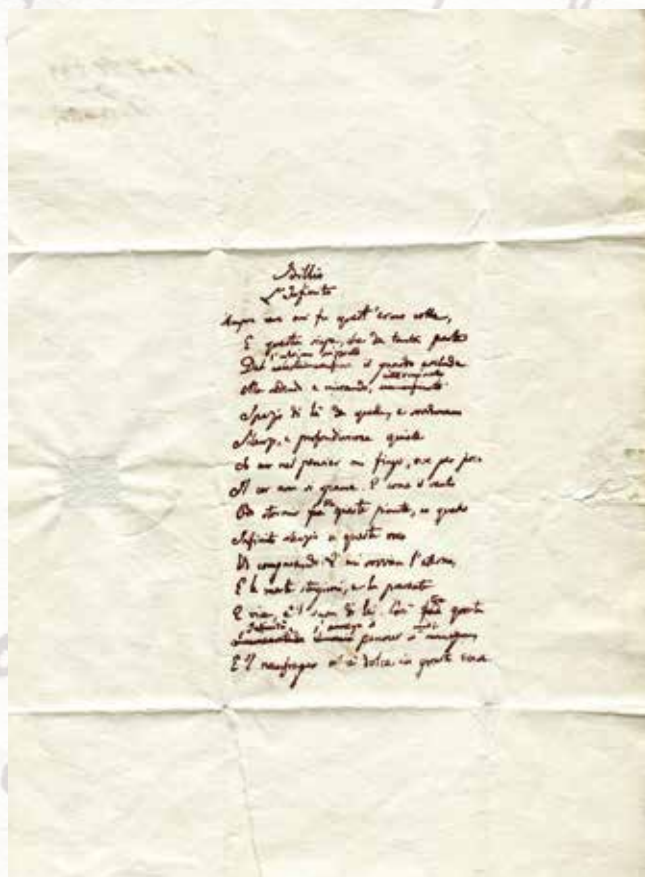 Idillio
L'Infinito
caro mi fu quest'ermo colle,
E questa siepe, che da tanta parte
l'ultimo orizzonte
Del il guardo esclude
interminato
Ma sedendo e mirando,
Spazio di là da quella, e sovrumani
Silenzi, e profondissima quiete
Io nel pensier mi fingo, ove per poco
Il cor non si spaura. E come il vento
Odo stormir fra queste piante, io quello
Infinito silenzio a questa voce
Vo comparando: e mi sovvien l'eterno,
E le morte stagioni, e la presente
E viva, e 'l suon di lei. Così questa
s'annega il
pensier
E 'l naufragar m'è dolce in questo mare